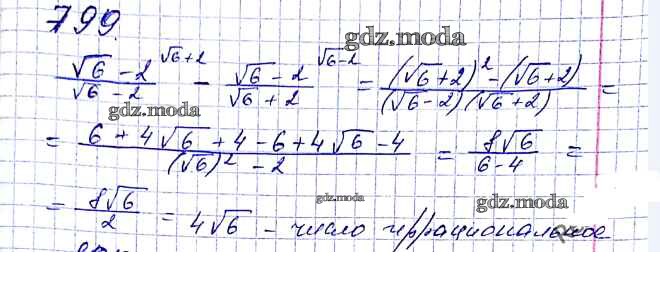 799.
gdz.moda
(√6 - 2)/(√6 - 2) ^(√6+2) - (√6 - 2)/(√6 + 2) ^(√6-2) = ((√6 + 2)² - (√6 + 2))/((√6 - 2)(√6 + 2)) =
gdz.moda gdz.moda
= (6 + 4√6 + 4 - 6 + 4√6 - 4)/((√6)² - 2) = 8√6/(6 - 4) =
gdz.moda gdz.moda
= 8√6/2 = 4√6 - число иррациональное